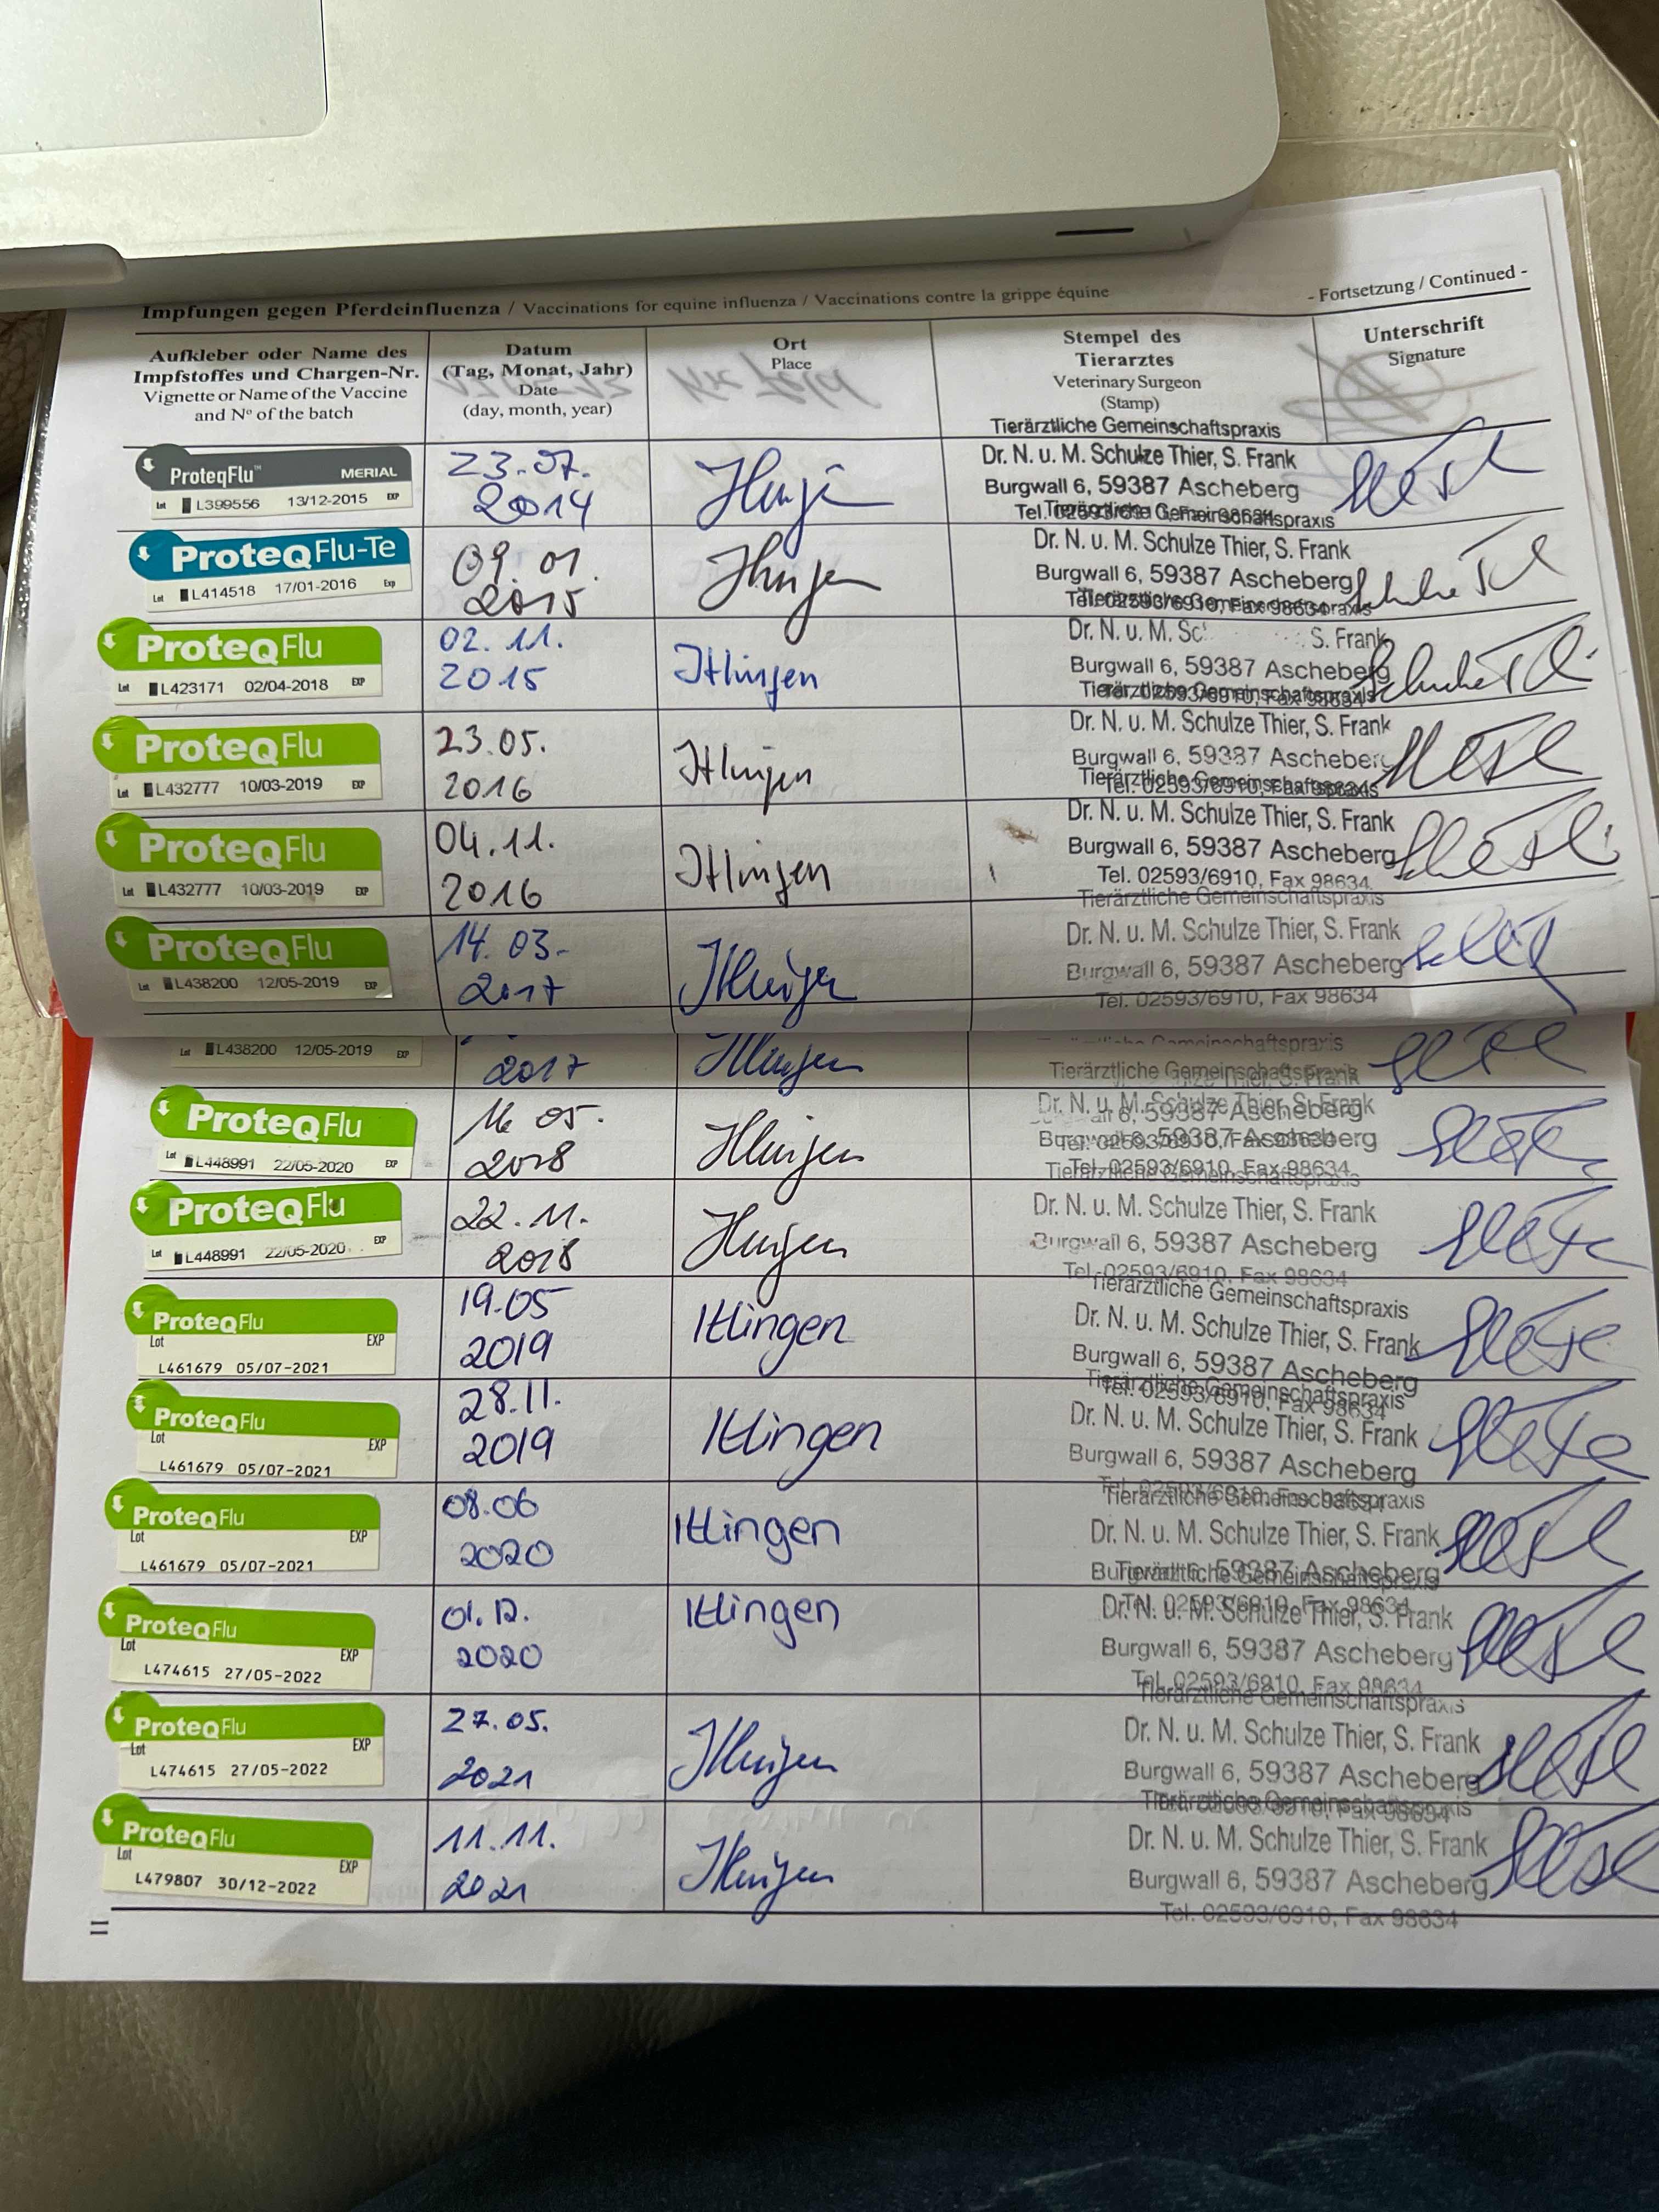 Impfungen gegen Pferdeinfluenza / Vaccinations for equine influenza / Vaccinations contre la grippe équine
- Fortsetzung / Continued -
Aufkleber oder Name des
Impfstoffes und Chargen-Nr.
Vignette or Name of the Vaccine
and Nº of the batch
Datum
(Tag, Monat, Jahr)
Date
(day, month, year)
Ort
Place
Stempel des
Tierarztes
Veterinary Surgeon
(Stamp)
Unterschrift
Signature
ProteqFlu™ MERIAL
Lot L399556 13/12-2015 EXP
23.07.
2014
Tierärztliche Gemeinschaftspraxis
Dr. N. u. M. Schulze Thier, S. Frank
Burgwall 6, 59387 Ascheberg
Tel. 02593/6910, Fax 98634
ProteqFlu-Te
Lot L414518 17/01-2016 Exp
09.01.
2015
Tierärztliche Gemeinschaftspraxis
Dr. N. u. M. Schulze Thier, S. Frank
Burgwall 6, 59387 Ascheberg
Tel. 02593/6910, Fax 98634
ProteqFlu
Lot L423171 02/04-2018 EXP
02.11.
2015
Itlingen
Tierärztliche Gemeinschaftspraxis
Dr. N. u. M. Sc S. Frank
Burgwall 6, 59387 Ascheberg
Tel. 02593/6910, Fax 98634
ProteqFlu
Lot L432777 10/03-2019 EXP
23.05.
2016
Itlingen
Tierärztliche Gemeinschaftspraxis
Dr. N. u. M. Schulze Thier, S. Frank
Burgwall 6, 59387 Ascheberg
Tel. 02593/6910, Fax 98634
ProteqFlu
Lot L432777 10/03-2019 EXP
04.11.
2016
Itlingen
Tierärztliche Gemeinschaftspraxis
Dr. N. u. M. Schulze Thier, S. Frank
Burgwall 6, 59387 Ascheberg
Tel. 02593/6910, Fax 98634
ProteqFlu
Lot L438200 12/05-2019 EXP
14.03.
2017
Itlingen
Tierärztliche Gemeinschaftspraxis
Dr. N. u. M. Schulze Thier, S. Frank
Burgwall 6, 59387 Ascheberg
Tel. 02593/6910, Fax 98634
Lot L438200 12/05-2019 EXP
2017
Itlingen
Gemeinschaftspraxis
ProteqFlu
Lot L448991 22/05-2020 EXP
16 05.
2018
Itlingen
Tierärztliche Gemeinschaftspraxis
Dr. N. u. M. Schulze Thier, S. Frank
Burgwall 6, 59387 Ascheberg
Tel. 02593/6910, Fax 98634
ProteqFlu
Lot L448991 22/05-2020 EXP
22.11.
2018
Itlingen
Tierärztliche Gemeinschaftspraxis
Dr. N. u. M. Schulze Thier, S. Frank
Burgwall 6, 59387 Ascheberg
Tel. 02593/6910, Fax 98634
ProteqFlu
Lot EXP
L461679 05/07-2021
19.05
2019
Itlingen
Tierärztliche Gemeinschaftspraxis
Dr. N. u. M. Schulze Thier, S. Frank
Burgwall 6, 59387 Ascheberg
Tel. 02593/6910, Fax 98634
ProteqFlu
Lot EXP
L461679 05/07-2021
28.11.
2019
Itlingen
Tierärztliche Gemeinschaftspraxis
Dr. N. u. M. Schulze Thier, S. Frank
Burgwall 6, 59387 Ascheberg
Tel. 02593/6910, Fax 98634
ProteqFlu
Lot EXP
L461679 05/07-2021
08.06
2020
Itlingen
Tierärztliche Gemeinschaftspraxis
Dr. N. u. M. Schulze Thier, S. Frank
Burgwall 6, 59387 Ascheberg
Tel. 02593/6910, Fax 98634
ProteqFlu
Lot EXP
L474615 27/05-2022
01.12.
2020
Itlingen
Tierärztliche Gemeinschaftspraxis
Dr. N. u. M. Schulze Thier, S. Frank
Burgwall 6, 59387 Ascheberg
Tel. 02593/6910, Fax 98634
ProteqFlu
Lot EXP
L474615 27/05-2022
27.05.
2021
Itlingen
Tierärztliche Gemeinschaftspraxis
Dr. N. u. M. Schulze Thier, S. Frank
Burgwall 6, 59387 Ascheberg
Tel. 02593/6910, Fax 98634
ProteqFlu
Lot EXP
L479807 30/12-2022
11.11.
2021
Itlingen
Tierärztliche Gemeinschaftspraxis
Dr. N. u. M. Schulze Thier, S. Frank
Burgwall 6, 59387 Ascheberg
Tel. 02593/6910, Fax 98634
11